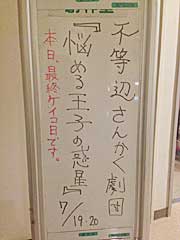 不等辺さんかく劇団
『悩める王子の惑星』
7/19.20
本日、最終ケイコ日です。